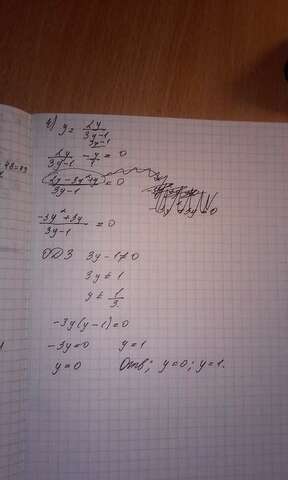 г) y = 2y / (3y-1)
2y / (3y-1) - y/1 = 0
(2y - 3y² + y) / (3y-1) = 0
(-3y² + 3y) / (3y-1) = 0
ОДЗ 3y - 1 ≠ 0
3y ≠ 1
y ≠ 1/3
-3y(y-1) = 0
-3y = 0 y = 1
y = 0 Отв; y = 0; y = 1.